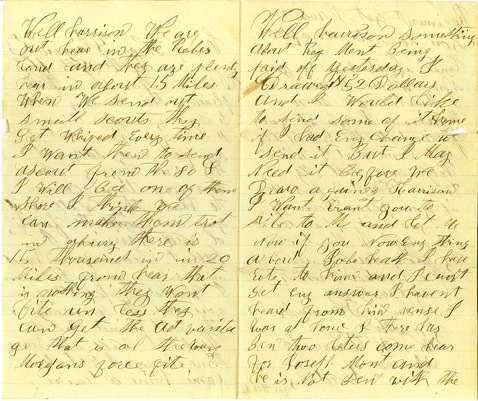 Well harrison We are
out hear in the Rebes
land and they are plenty
near in about 15 Miles
When We send out
small scouts they
Get Whiped Every time
I Want them to send
a scout from the 80
I Will Bee one of them
shore I think We
can make them trot
in ghurey there is
15 thousand in in 20
Miles from hear that
is nothing they Wont
fite un less they
can get the ad vanta
ge that is all the way
Morgans force fite
Well harrison something
about Reg Ment Being
paid off yesterday I
drawed $52 Dollars
and I Would like
to send some of it Home
if I had Eny Chance to
send it But I May
Need it Before We
Draw a gain Harrison
I Want you to
rite to Me and let Me
Now if you Now Eny thing
a bout I had
rote to him and I cant
get Eny answer I havent
heard from him sense I
was at home I there has
Ben two leters come hear
for Joseph Mont and
he is Not Ben with the